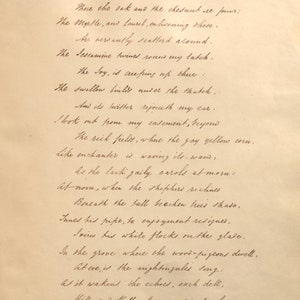 There the oak and the chestnut
The Myrtle, and Laurel, enlivening these.
As verdantly scatter'd around.
The Jessamine twines round my latch.
The Ivy, is creeping up there:
The swallow builds under the thatch,
And its twitter rejoiceth my ear.
I look out from my casement, beyond
The rich fields, where the gay yellow corn,
Like enchanter is waving its wand,
As the lark gaily carrols at morn:
At noon, when the shepherd reclines
Beneath the tall beechen tree's shade,
Tunes his pipe, to enjoyment resigns,
his white flocks on the glade.
In the grove where the wood-pigeons dwell,
At eve, is the nightingales song
As it wakens the echoes, each dell,